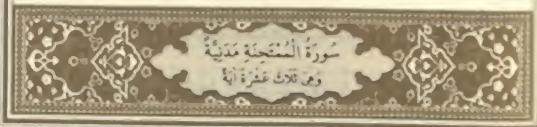 سُورَةُ الْمُمْتَحِنَةِ مَدَنِيَّةٌ
وَهِىَ ثَلَاثَ عَشْرَةَ اٰيَةً